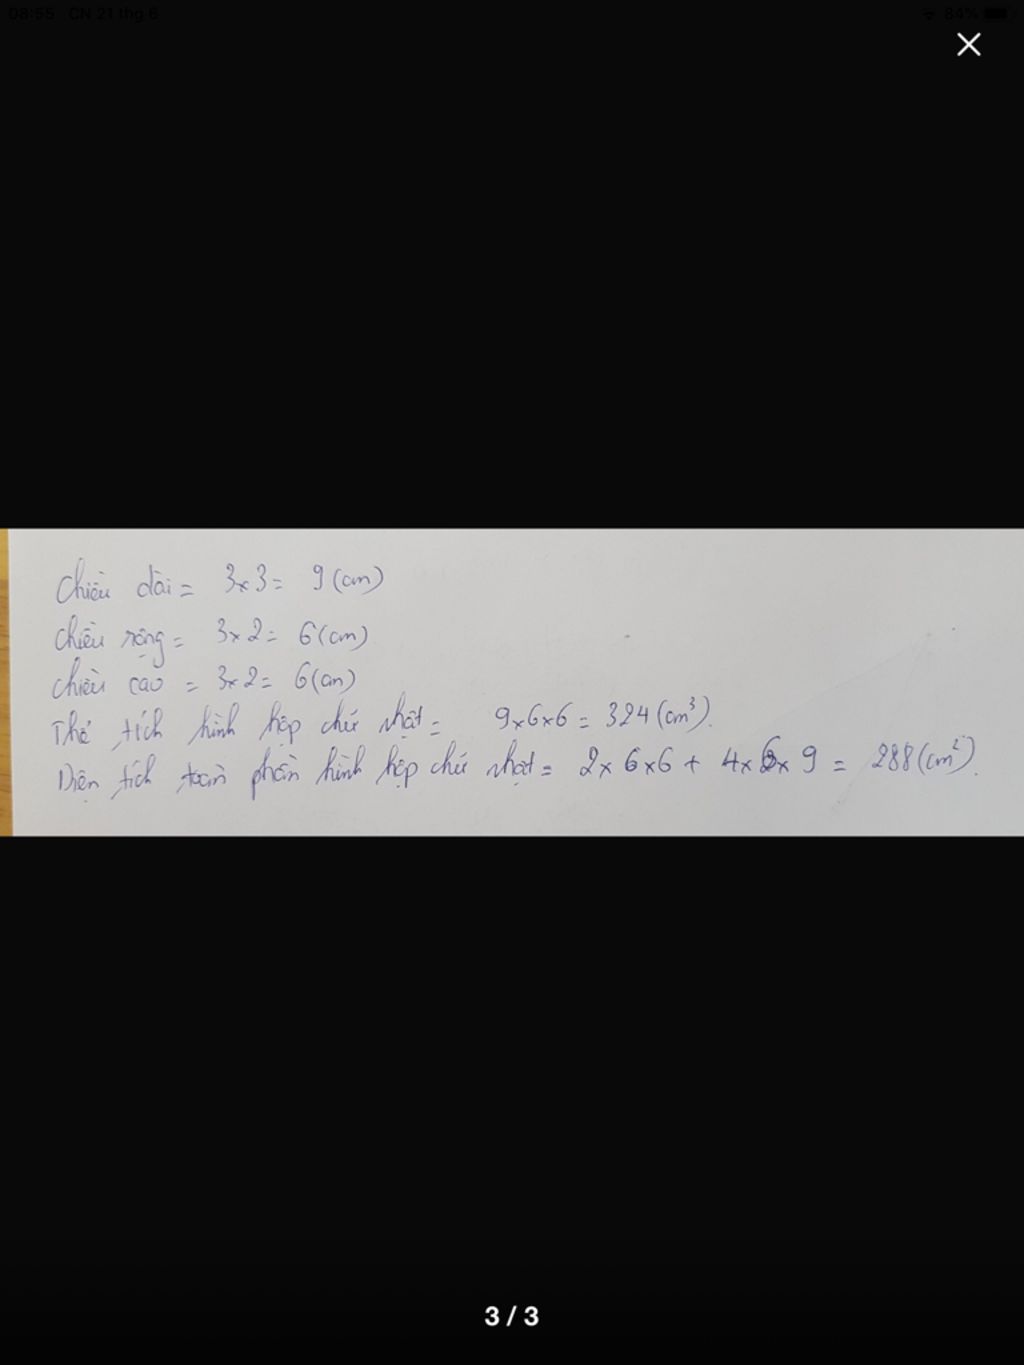 08:55 CN 21 thg 6 84%
Chiều dài = 3x3= 9(cm)
Chiều rộng = 3x2= 6(cm)
Chiều cao = 3x2= 6(cm)
Thể tích hình hộp chữ nhật = 9x6x6 = 324(cm³).
Diện tích toàn phần hình hộp chữ nhật = 2x6x6 + 4x6x9 = 288(cm²).
3 / 3